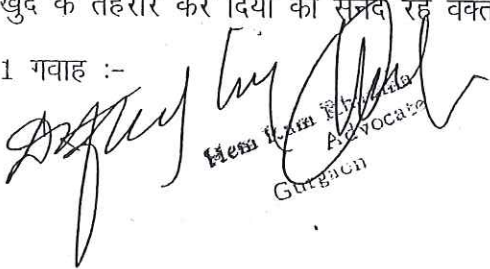 खुद के तहरीर कर दिया की सनद रहे वक्त
1 गवाह :-
Hem Ram
Advocate
Gurgaon